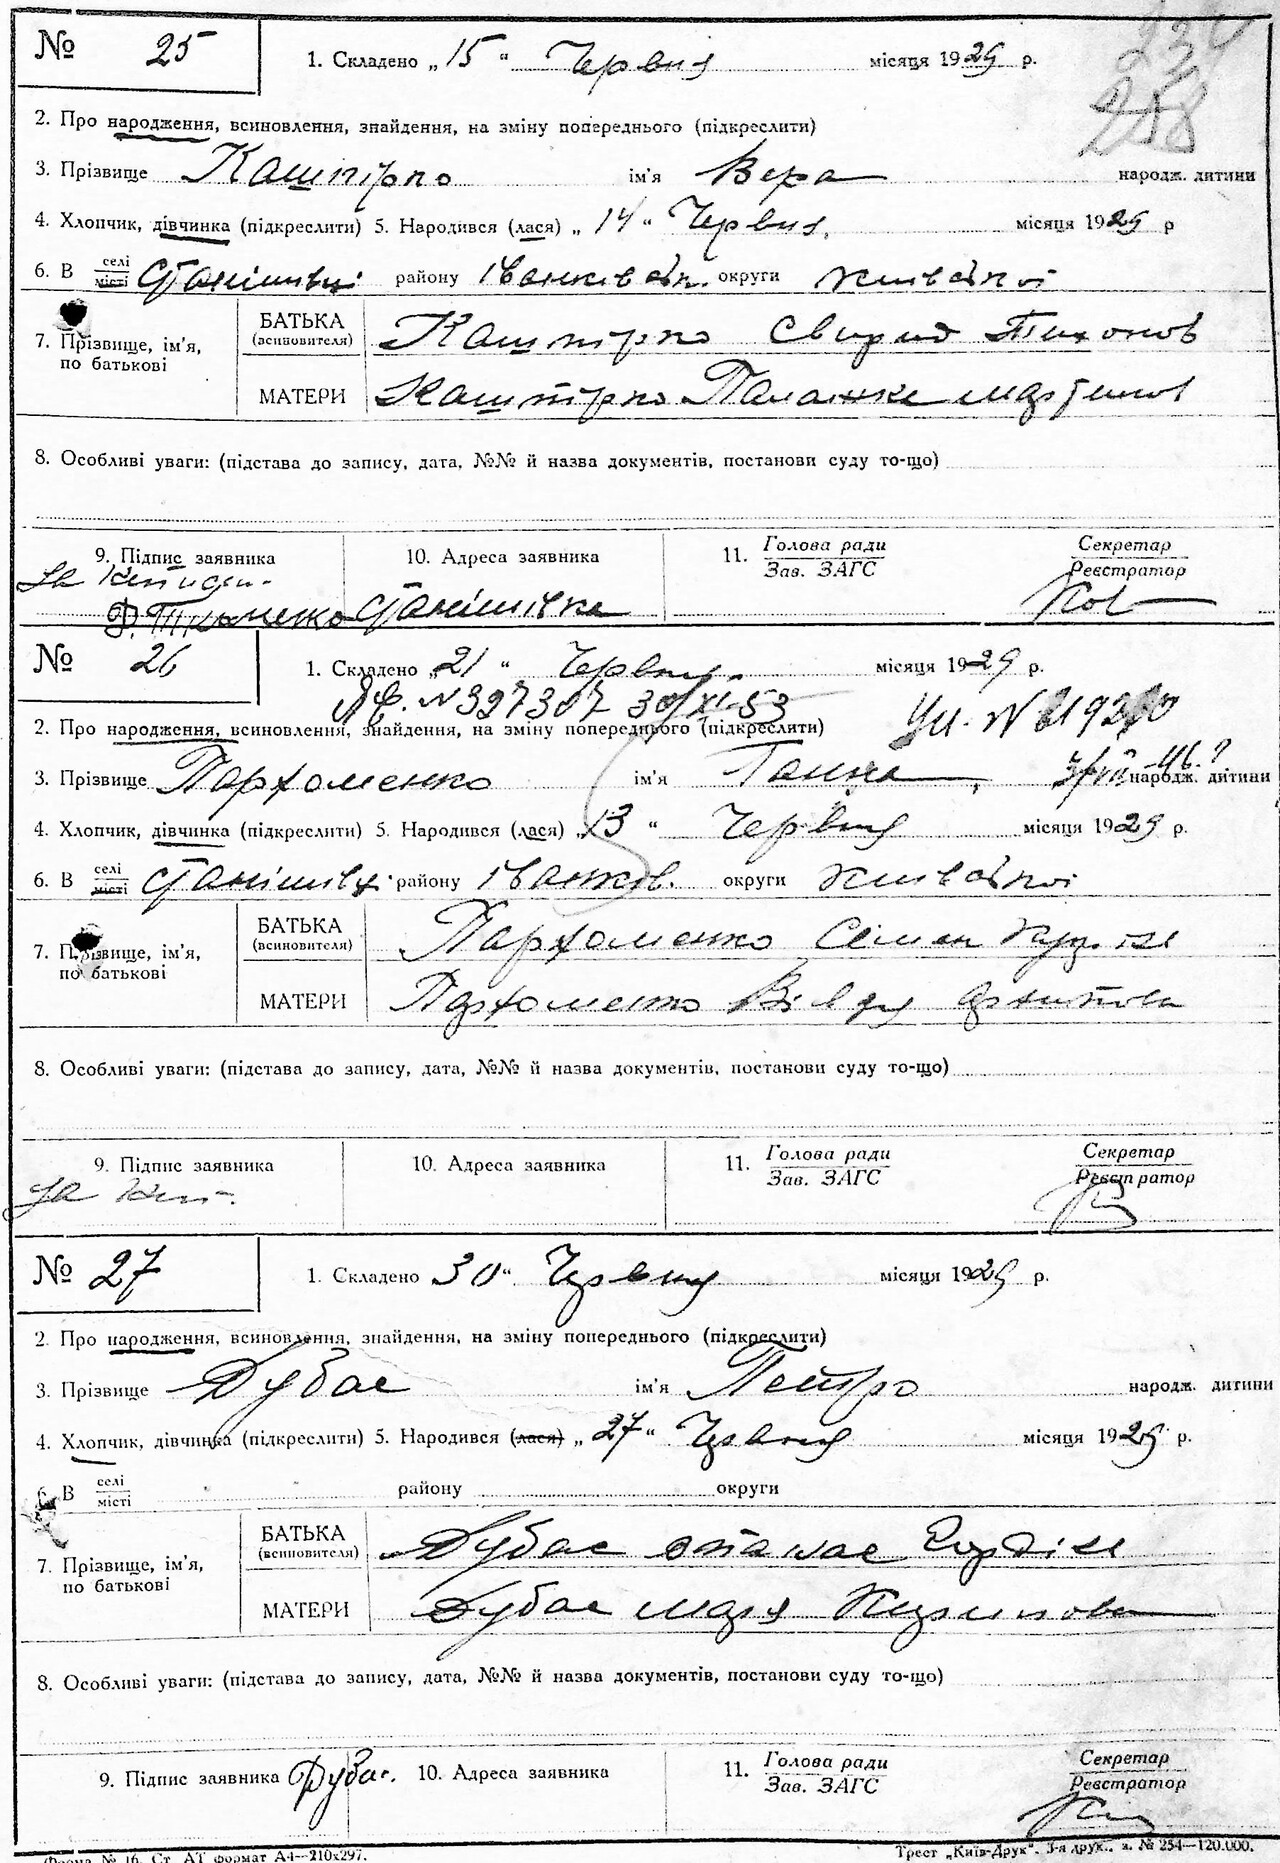 № 25 1. Складено „15“ Червня місяця 1929 р.
234
258
2. Про народження, всиновлення, знайдення, на зміну попереднього (підкреслити)
3. Прізвище Кашпірко ім'я Вера народж. дитини
4. Хлопчик, дівчинка (підкреслити) 5. Народився (лася) „14“ Червня місяця 1929 р
6. В селі/місті Станішивці району Іванківськ. округи Київської
7. Прізвище, ім'я, по батькові
БАТЬКА (всиновителя) Кашпірко Свирид Тихонов
МАТЕРИ Кашпірко Паланке Мартинов
8. Особливі уваги: (підстава до запису, дата, №№ й назва документів, постанови суду то-що)
9. Підпис заявника 10. Адреса заявника 11. Голова ради / Зав. ЗАГС Секретар / Реєстратор
За
Станішівка
№ 26 1. Складено „21“ Червня місяця 1929 р.
ЯФ. N 327307 30/XI-53
2. Про народження, всиновлення, знайдення, на зміну попереднього (підкреслити)
3. Прізвище Пархоменко ім'я Ганна народж. дитини
4. Хлопчик, дівчинка (підкреслити) 5. Народився (лася) „13“ Червня місяця 1929 р.
6. В селі/місті Станішивці району Іванков. округи Київської
7. Прізвище, ім'я, по батькові
БАТЬКА (всиновителя) Пархоменко Семен
МАТЕРИ Пархоменко Вівдя Архипова
8. Особливі уваги: (підстава до запису, дата, №№ й назва документів, постанови суду то-що)
9. Підпис заявника 10. Адреса заявника 11. Голова ради / Зав. ЗАГС Секретар / Реєстратор
За
№ 27 1. Складено 30“ Червня місяця 1929 р.
2. Про народження, всиновлення, знайдення, на зміну попереднього (підкреслити)
3. Прізвище Дубас ім'я Петро народж. дитини
4. Хлопчик, дівчинка (підкреслити) 5. Народився (лася) „27“ Червня місяця 1929 р.
6. В селі/місті району округи
7. Прізвище, ім'я, по батькові
БАТЬКА (всиновителя) Дубас Опанас Гордіев
МАТЕРИ Дубас Маря
8. Особливі уваги: (підстава до запису, дата, №№ й назва документів, постанови суду то-що)
9. Підпис заявника Дубас. 10. Адреса заявника 11. Голова ради / Зав. ЗАГС Секретар / Реєстратор
Форма № 16. Ст. АТ формат А4—210х297. Трест „Київ-Друк“. 3-я друк., з. № 254—120.000.